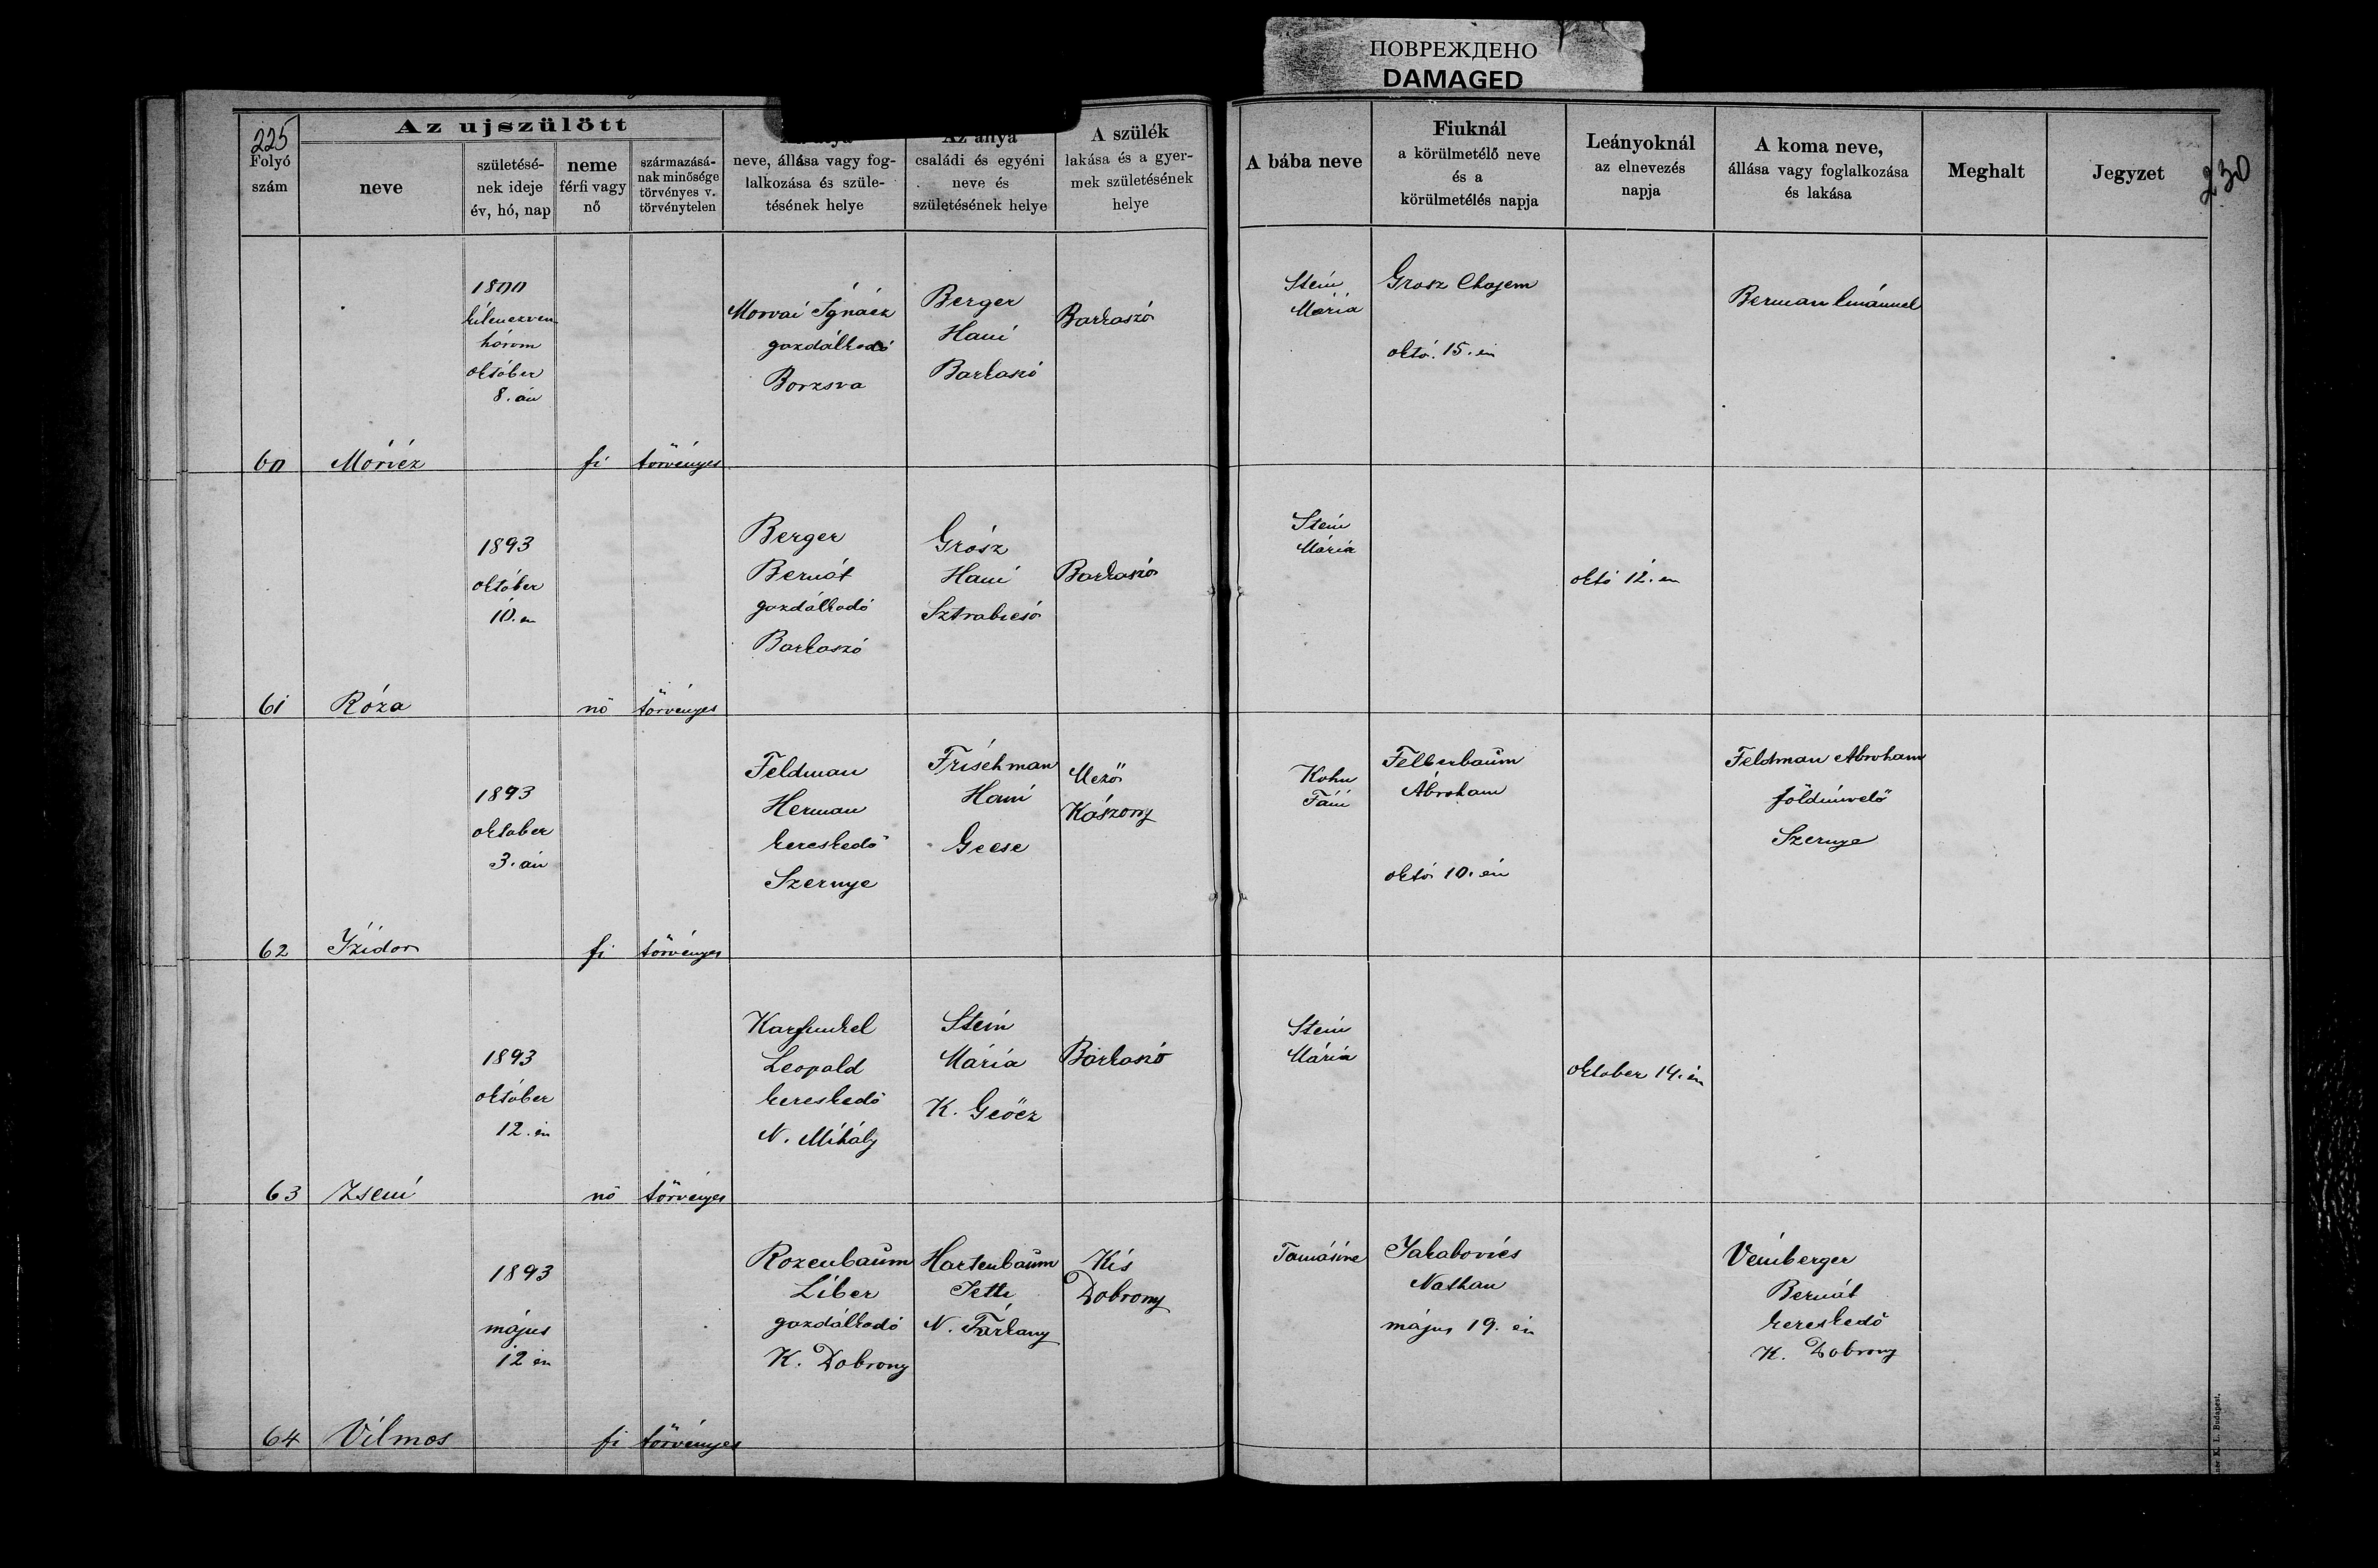 ПОВРЕЖДЕНО
DAMAGED
225
230
Az ujszülött
Folyó
szám
neve
születésé-
nek ideje
év, hó, nap
neme
férfi vagy
nő
származásá-
nak minősége
törvényes v.
törvénytelen
neve, állása vagy fog-
lalkozása és szüle-
tésének helye
Az anya
családi és egyéni
neve és
születésének helye
A szülék
lakása és a gyer-
mek születésének
helye
A bába neve
Fiuknál
a körülmetélő neve
és a
körülmetélés napja
Leányoknál
az elnevezés
napja
A koma neve,
állása vagy foglalkozása
és lakása
Meghalt
Jegyzet
60
Móricz
1800
kilenczven
három
október
8. án
fi
törvényes
Morvai Ignácz
gazdálkodó
Borzsva
Berger
Hani
Barkaszó
Barkaszó
Stein
Mária
Grosz Chajem
októ. 15. én
Berman Emánuel
61
Róza
1893
október
10. en
nö
törvényes
Berger
Bernát
gazdálkodó
Barkaszó
Grósz
Hani
Sztrabicsó
Barkaszó
Stein
Mária
októ 12. en
62
Izidor
1893
oktober
3. án
fi
törvényes
Feldman
Herman
kereskedö
Szernye
Frischman
Hani
Gecse
Mező
Kászony
Kohn
Fáni
Fellerbaum
Ábraham
októ 10. én
Feldman Abraham
földmivelő
Szernye
63
Zseni
1893
október
12. én
nö
törvényes
Karfunkel
Leopold
kereskedö
N. Mihály
Stein
Mária
K. Geöcz
Barkaszó
Stein
Mária
oktober 14. én
64
Vilmos
1893
május
12 én
fi
törvényes
Rozenbaum
Liber
gazdálkodó
K. Dobrony
Hartenbaum
Jetti
N. Tárkany
Kis
Dobrony
Tamásine
Jakabovics
Nathan
május 19. én
Veinberger
Bernát
kereskedö
K. Dobrony
K. I. Budapest.